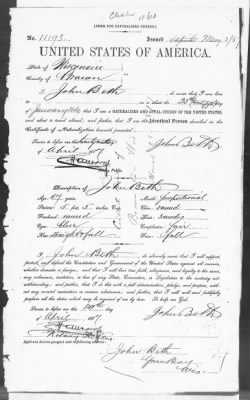 [FORM FOR NATURALIZED CITIZEN.]
No. 11193 Issued May 2/87
UNITED STATES OF AMERICA.
State of Wisconsin
County of Brown
I John Beth
that I am a NATURALIZED AND LOYAL CITIZEN OF THE UNITED STATES,
and about to travel abroad; and further, that I am the Identical Person described in the
Certificate of Naturalization herewith presented.
Sworn to before me this
John Beth
of April 1887
Description of John Beth
Age: 47 years Mouth: proportional
Stature: 5 ft 5 inches, Eng. Chin: round
Forehead: round Hair: sandy
Eyes: blue Complexion: fair
Nose: straight & full Face: full
I, John Beth do solemnly swear that I will support,
protect, and defend the Constitution and Government of the United States against all enemies,
whether domestic or foreign; and that I will bear true faith, allegiance, and loyalty to the same,
any ordinance, resolution, or law of any State, Convention, or Legislature to the contrary not-
withstanding; and further, that I do this with a full determination, pledge, and purpose, with-
out any mental reservation or evasion whatsoever; and further, that I will well and faithfully
perform all the duties which may be required of me by law. So help me God.
Sworn to before me this 29th day
John Beth
of April 1887
John Beth
Green Bay
Wis